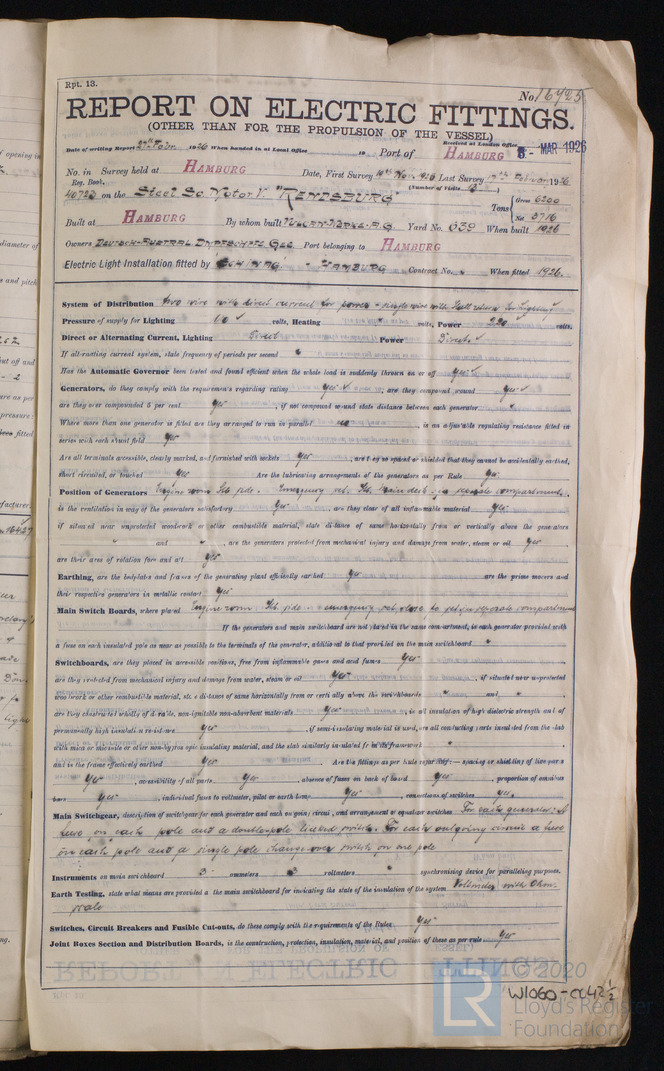 Rpt. 13.
No. 16925
REPORT ON ELECTRIC FITTINGS.
(OTHER THAN FOR THE PROPULSION OF THE VESSEL)
Received at London Office
Date of writing Report 1926 When handed in at Local Office 19 Port of HAMBURG 5 MAR 1926
No. in Survey held at HAMBURG Date, First Survey 1926 Last Survey 1926
Reg. Book. (Number of Visits
40723 on the Steel Sc. Motor V. "RENDSBURG" Tons { Gross 6200
Net 3716
Built at HAMBURG By whom built Yard No. 639 When built 1926
Owners Port belonging to HAMBURG
Electric Light Installation fitted by HAMBURG Contract No. When fitted 1926.
System of Distribution two wire with direct current for power & single wire with hull return for lighting
Pressure of supply for Lighting 110 volts, Heating " volts, Power 220 volts.
Direct or Alternating Current, Lighting Direct Power Direct
If alternating current system, state frequency of periods per second "
Has the Automatic Governor been tested and found efficient when the whole load is suddenly thrown on or off yes
Generators, do they comply with the requirements regarding rating yes , are they compound wound yes
are they over compounded 5 per cent. yes , if not compound wound state distance between each generator "
Where more than one generator is fitted are they arranged to run in parallel no , is an adjustable regulating resistance fitted in
series with each shunt field yes
Are all terminals accessible, clearly marked, and furnished with sockets yes , are they so spaced or shielded that they cannot be accidentally earthed,
short circuited, or touched yes Are the lubricating arrangements of the generators as per Rule yes
Position of Generators Engine room Stb. side. Emergency set. Stb. main deck in separate compartment.
is the ventilation in way of the generators satisfactory yes , are they clear of all inflammable material yes
if situated near unprotected woodwork or other combustible material, state distance of same horizontally from or vertically above the generators
" and " , are the generators protected from mechanical injury and damage from water, steam or oil yes
are their axes of rotation fore and aft yes
Earthing, are the bedplates and frames of the generating plant efficiently earthed yes are the prime movers and
their respective generators in metallic contact yes
Main Switch Boards, where placed Engine room Stb. side emergency set close to set in separate compartment
If the generators and main switchboard are not placed in the same compartment, is each generator provided with
a fuse on each insulated pole as near as possible to the terminals of the generator, additional to that provided on the main switchboard "
Switchboards, are they placed in accessible positions, free from inflammable gases and acid fumes yes
are they protected from mechanical injury and damage from water, steam or oil yes , if situated near unprotected
woodwork or other combustible material, state distance of same horizontally from or vertically above the switchboards " and "
are they constructed wholly of durable, non-ignitable non-absorbent materials yes , is all insulation of high dielectric strength and of
permanently high insulation resistance yes , if semi-insulating material is used, are all conducting parts insulated from the slab
with mica or micanite or other non-hygroscopic insulating material, and the slab similarly insulated from its framework "
and is the frame effectively earthed yes Are the fittings as per Rule regarding:— spacing or shielding of live parts
yes , accessibility of all parts yes , absence of fuses on back of board yes , proportion of omnibus
bars yes , individual fuses to voltmeter, pilot or earth lamp yes , connections of switches yes
Main Switchgear, description of switchgear for each generator and each outgoing circuit, and arrangement of equaliser switches For each generator: a
fuse on each pole and a double pole linked switch. For each outgoing circuit a fuse
on each pole and a single pole change over switch on one pole
Instruments on main switchboard 3 ammeters 3 voltmeters " synchronising device for paralleling purposes.
Earth Testing, state what means are provided at the main switchboard for indicating the state of the insulation of the system Voltmeter with Ohm
scale
Switches, Circuit Breakers and Fusible Cut-outs, do these comply with the requirements of the Rules yes
Joint Boxes Section and Distribution Boards, is the construction, protection, insulation, material, and position of these as per rule yes
© 2020
W1060-0042 1/2
LR
Lloyd's Register
Foundation